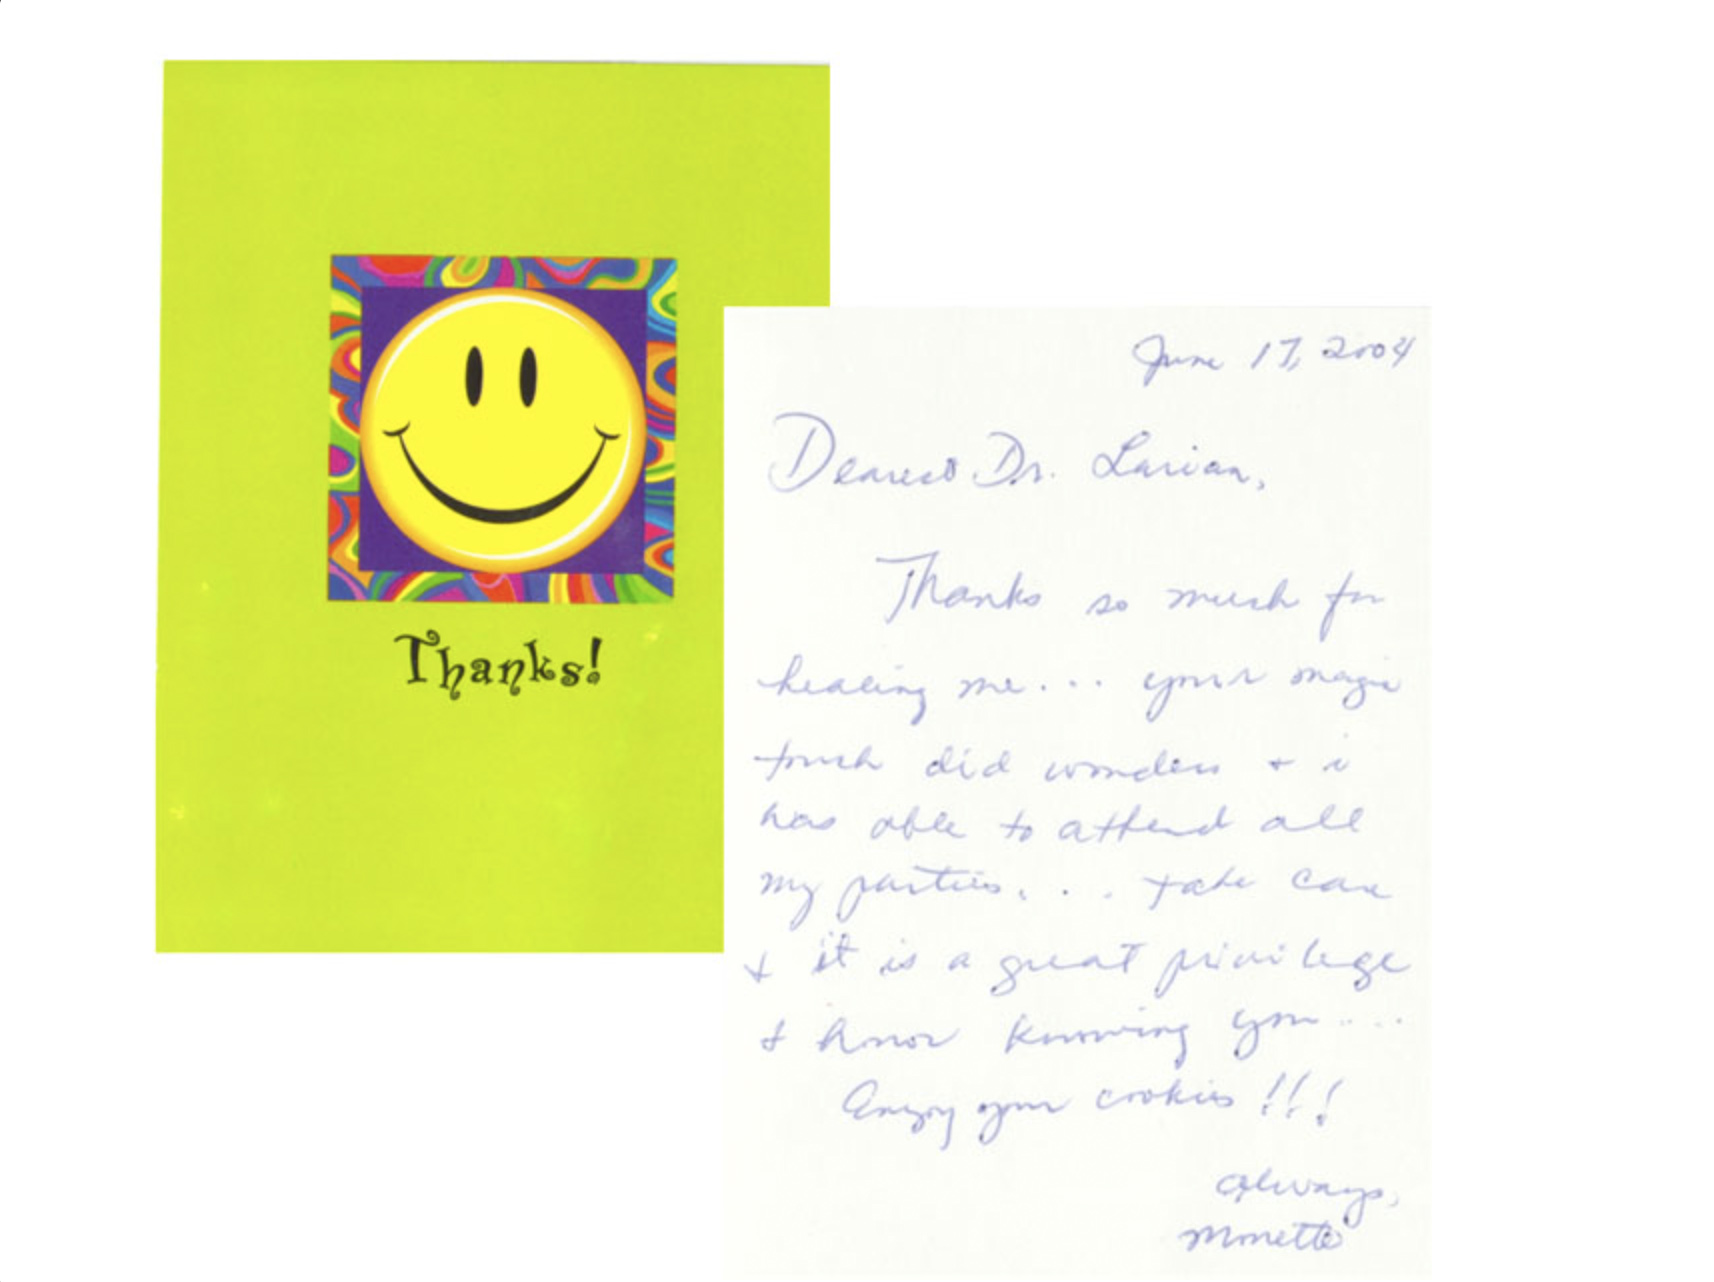 Thanks!
June 17, 2004
Dearest Dr. Larian,
Thanks so much for
healing me... your magic
touch did wonders + i
was able to attend all
my parties... take care
+ it is a great privilege
+ honor knowing you....
Enjoy your cookies!!!
Always,
Monette